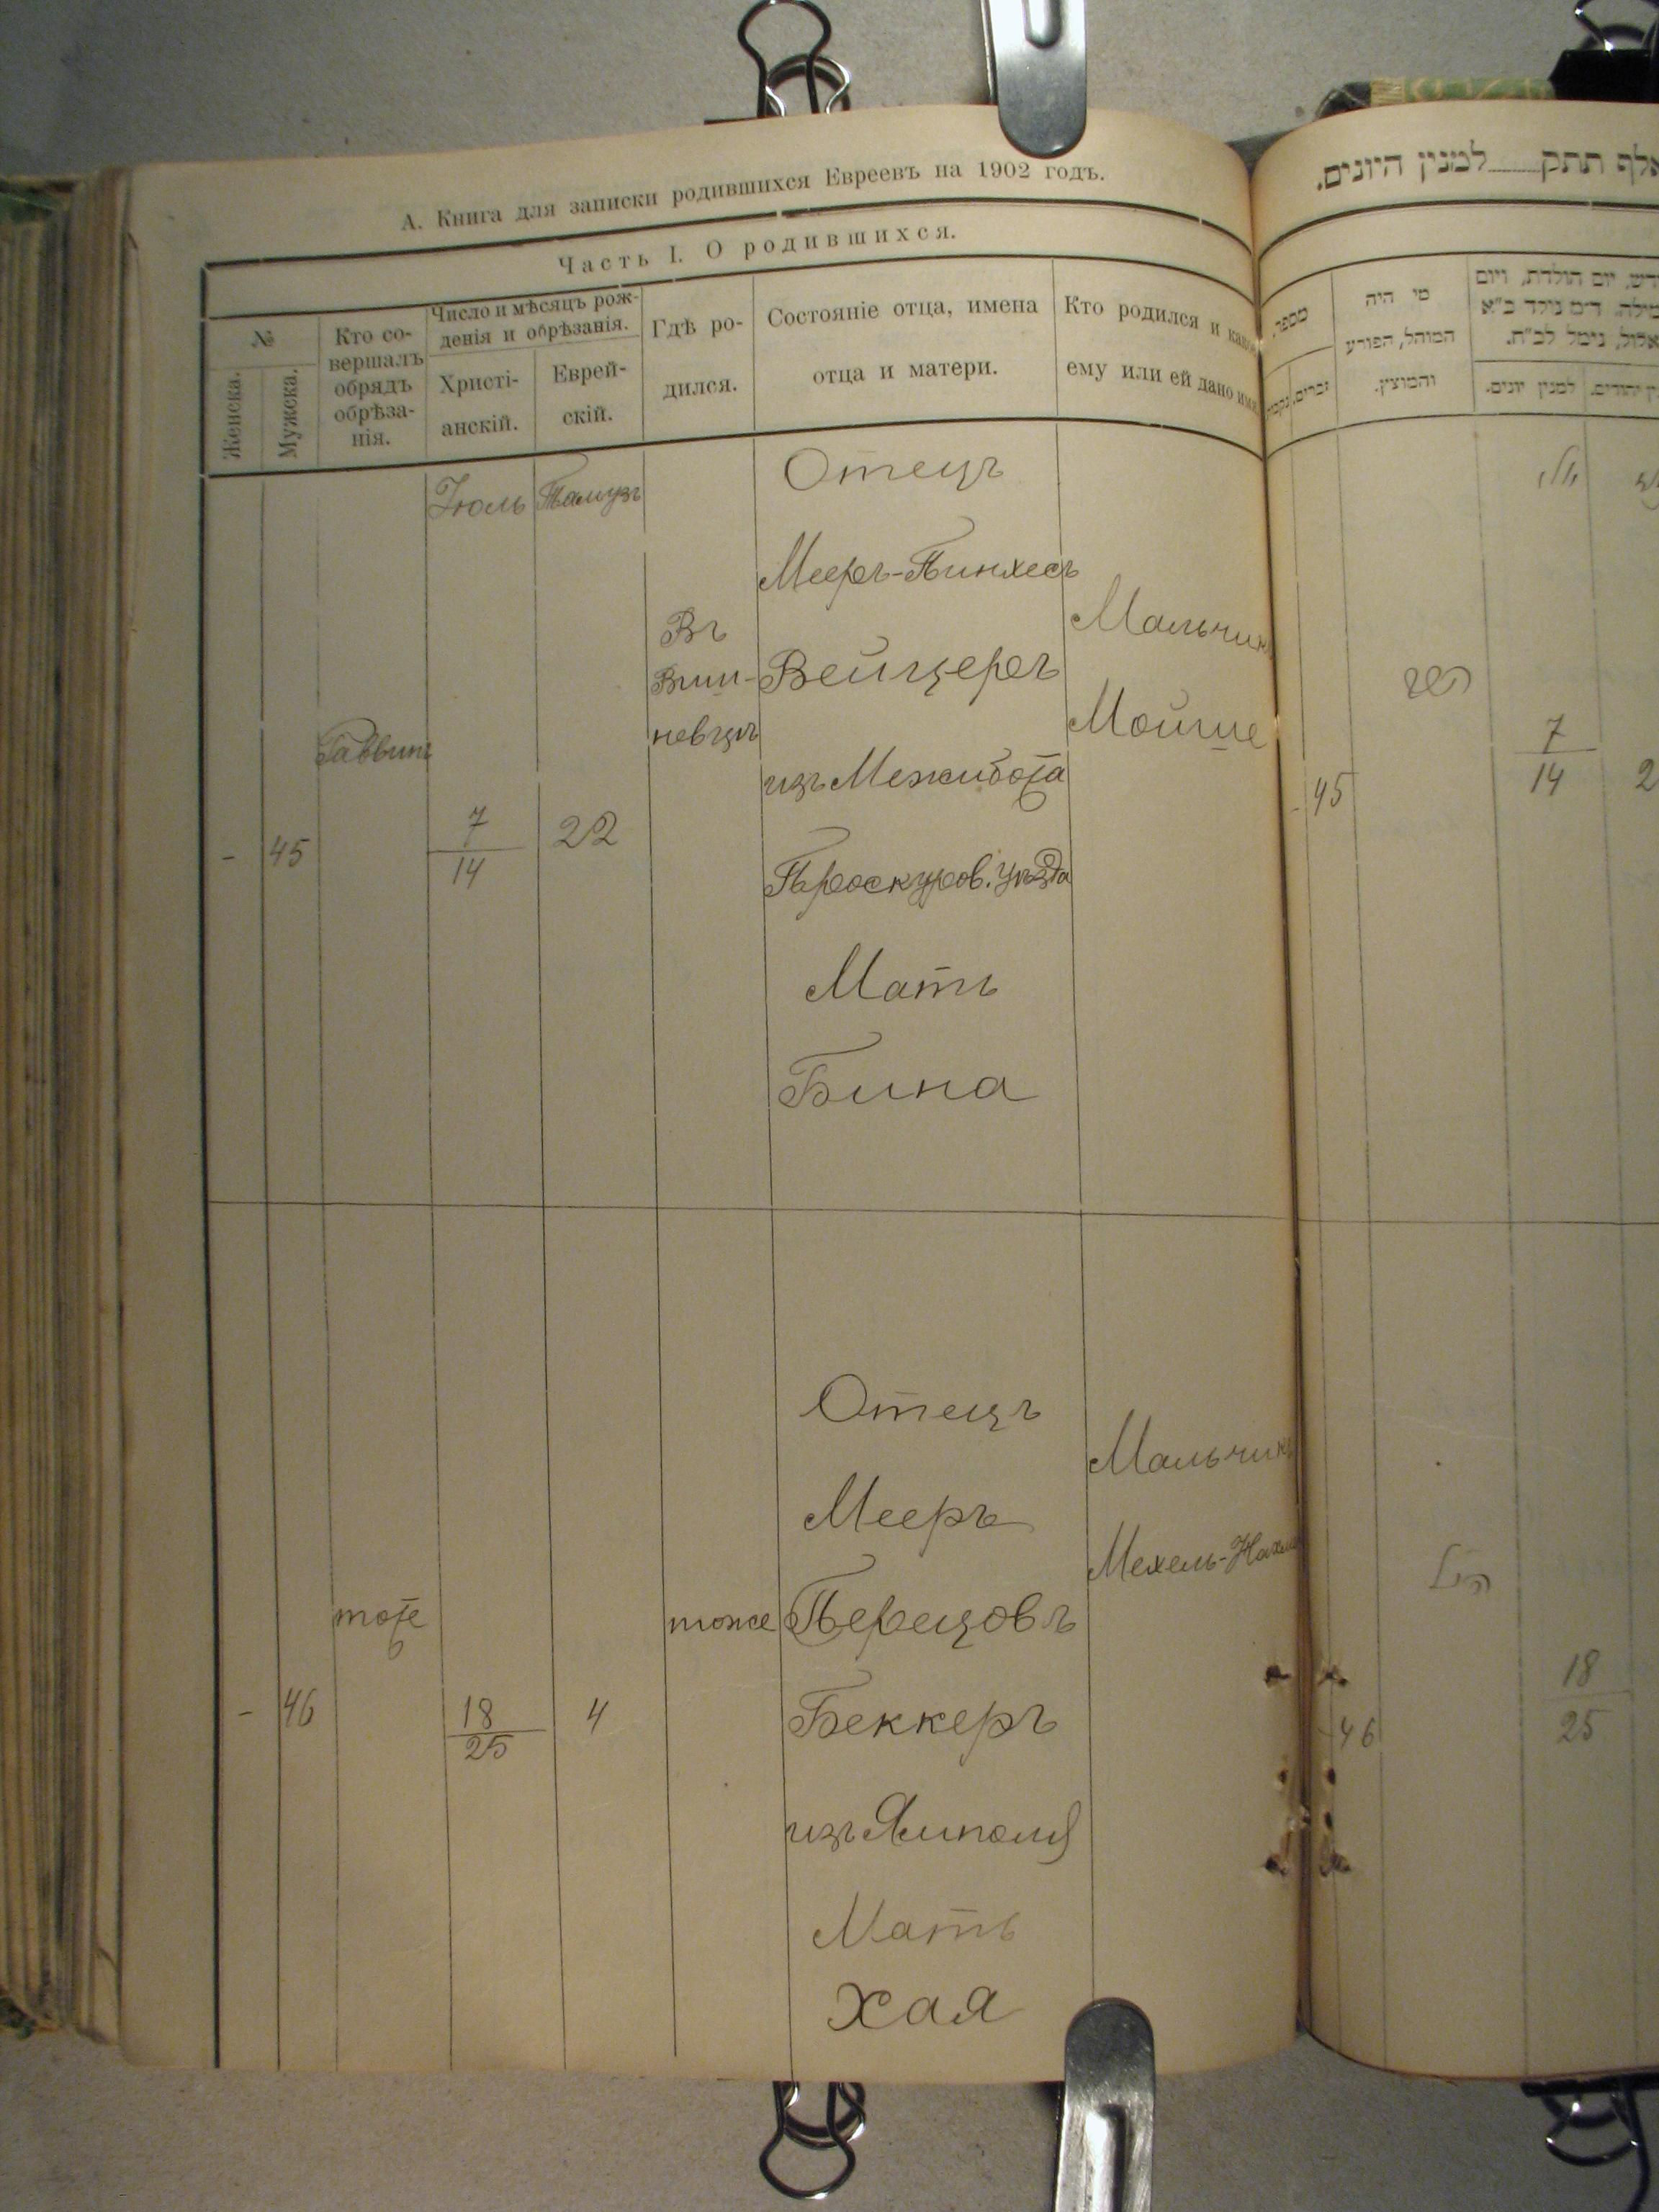 А. Книга для записки родившихся Евреевъ на 1902 годъ.
Часть I. О родившихся.
№
Женска.
Мужска.
Кто со-
вершалъ
обрядъ
обрѣза-
нія.
Число и мѣсяцъ рож-
денія и обрѣзанія.
Христі-
анскій.
Еврей-
скій.
Гдѣ ро-
дился.
Состояніе отца, имена
отца и матери.
Кто родился и какое
ему или ей дано имя.
Іюль
Тамузъ
Отецъ
Мееръ-Пинхесъ
Вейцеръ
изъ Межибожа
Проскуров. уѣзда
Мать
Бина
Въ
Виш-
невцѣ
Мальчикъ
Мойше
-
45
7
14
22
Отецъ
Мееръ
Перецовъ
Беккеръ
изъ Ямполя
Мать
Хая
Мальчикъ
Мехель-
тоже
-
46
тоже
18
25
4
אלף תתק למנין היונים.
מספר.
זכרים.
נקבות
מי היה
המוהל, הפורע
והמוצץ.
יום הולדת, ויום
נולד כ״א
אלול, נימל לכ״ח.
למנין יונים.
יולי
45
7
14
2
46
18
25